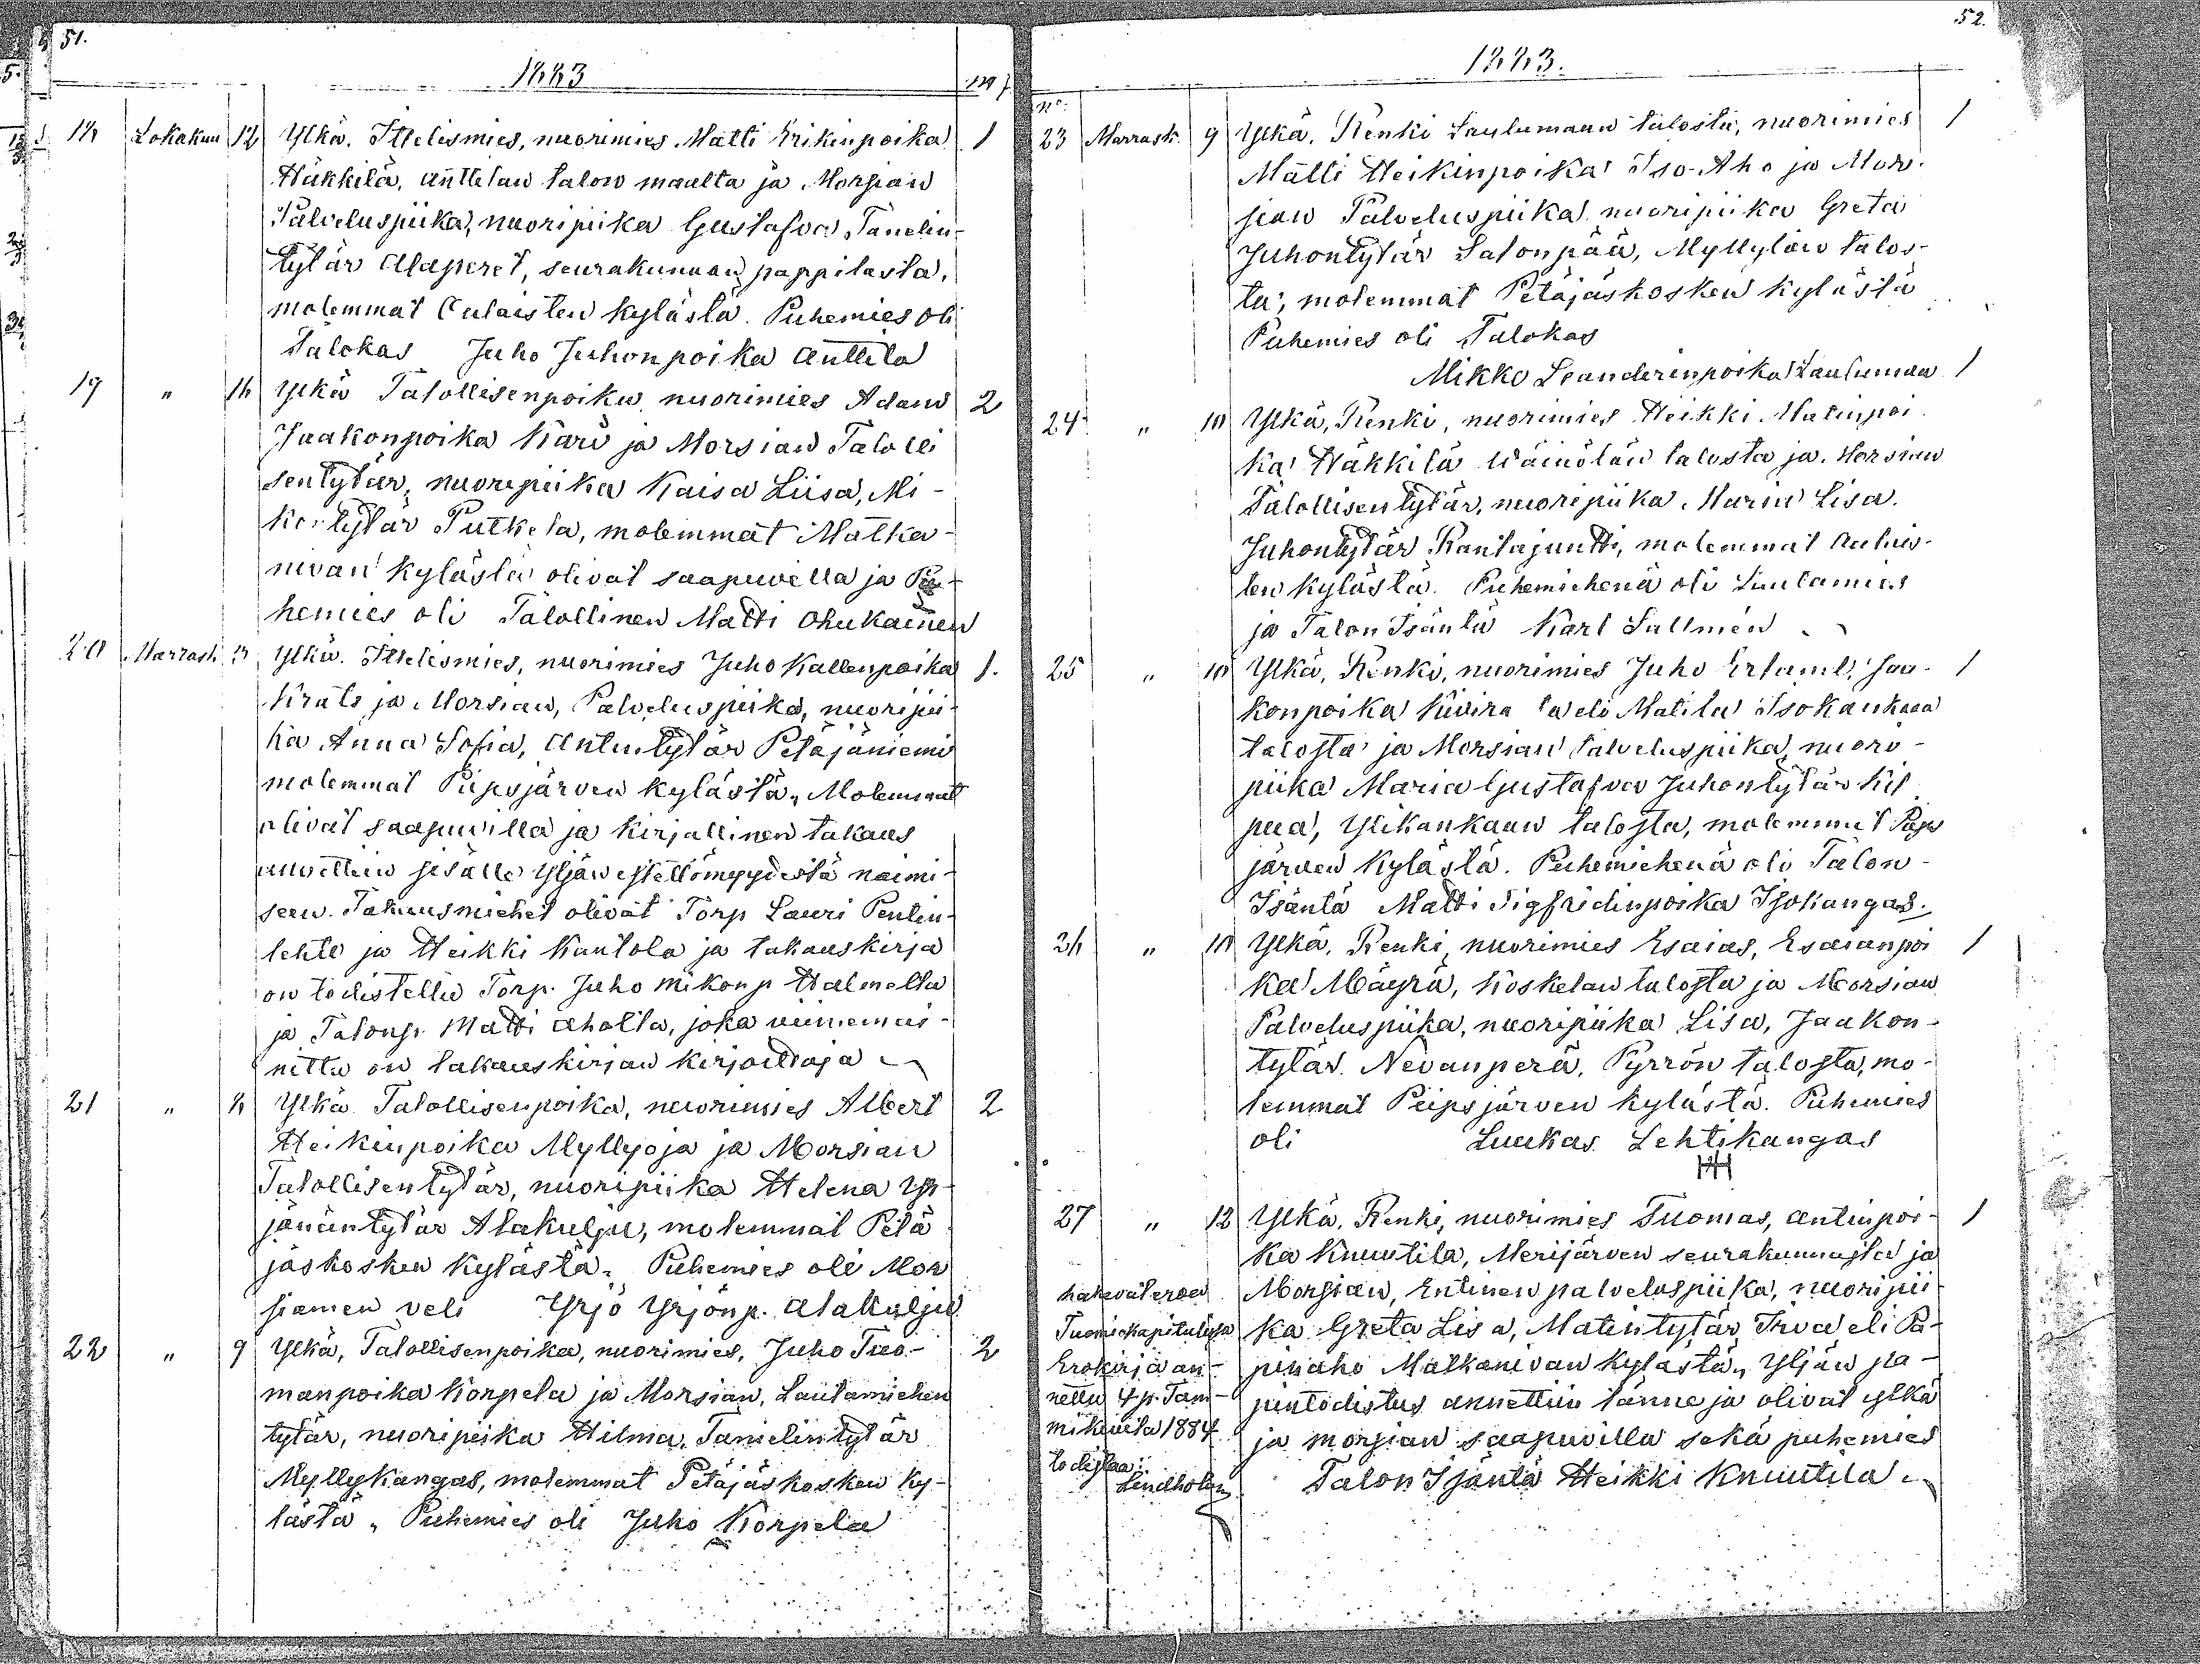 51.
1883
mf
18 Lokakuu 12 Ylkä. Ittelismies, nuorimies Matti Erikinpoika 1
Häkkilä, Anttilan talon maalta ja Morsian
Palveluspiika, nuoripiika Gustafva Tanelin-
tytär Alaperet, seurakunnan pappilasta,
molemmat Oulaisten kylästä. Puhemies oli
Talokas Juho Juhonpoika Anttila
19 " 16 Ylkä Talollisenpoika nuorimies Adam 2
Jaakonpoika Karï ja Morsian Talolli
sentytär, nuoripiika Kaisa Liisa, Mi-
kontytär Putkela, molemmat Matka-
nivan kylästä olivat saapuvilla ja Pu-
hemies oli Talollinen Matti Ohukainen
20 Marrask. Ylkä. Ittelismies, nuorimies Juho Kallenpoika 1.
Kräts ja Morsian, Palveluspiika, nuoripii-
ka Anna Sofia, Antintytär Petäjäniemi
molemmat Piipsjärven kylästä. Molemmat
olivat saapuvilla ja kirjallinen takaus
annettiin sisälle yljän estellömyydestä naimi-
seen. Takausmiehet olivat Torp Lauri Pentin-
lehto ja Heikki Kantola ja takauskirja
on todistettu Torp. Juho Mikonp. Halmelta
ja Talonp. Matti Aholta, joka viimemai-
nittu on takauskirjan kirjoittaja
21 " 8 Ylkä Talollisenpoika, nuorimies Albert 2
Heikinpoika Myllyoja ja Morsian
Talollisentytär, nuoripiika Helena Yr-
jänäntytär Alakulju, molemmat Petä
jäskosken kylästä. Puhemies oli Mor
siamen veli Yrjö Yrjönp. Alakulju
22 " 9 Ylkä, Talollisenpoika, nuorimies, Juho Tuo- 2
manpoika Korpela ja Morsian, Lautamiehen
tytär, nuoripiika Hilma, Tanielintytär
Myllykangas, molemmat Petäjäskosken ky-
lästä. Puhemies oli Juho Korpela
52.
1883.
no.
23 Marrask. 9 Ylkä, Renki Laulumaan talosta, nuorimies 1
Matti Heikinpoika Iso-Aho ja Mor-
sian Palveluspiika nuoripiika Greta
Juhontytär Salonpää, Myllylän talos-
ta, molemmat Petäjäskosken kylästä
Puhemies oli Talokas
Mikko Leanderinpoika Laulumaa 1
24 " 10 Ylkä, Renki, nuorimies Heikki Matinpoi
ka Häkkilä Wäinölän talosta ja Morsian
Talollisentytär, nuoripiika Maria Lisa
Juhontytär Rantajuntti, molemmat Oulais-
ten kylästä. Puhemiehenä oli Lautamies
ja Talon Isäntä Karl Sallmén
25 " 10 Ylkä, Renki, nuorimies Juho Erland, Jaa- 1
konpoika Kiviranta eli Matila Isokankaan
talosta ja Morsian Palveluspiika, nuori-
piika Maria Gustafva Juhontytär Kil
pua, Ylikankaan talosta, molemmat Piips
järven kylästä. Puhemiehenä oli Talon-
Isäntä Matti Sigfridinpoika Isokangas.
26 " 10 Ylkä, Renki, nuorimies Esaias, Esaianpoi 1
ka Mäyrä, Koskelan talosta ja Morsian
Palveluspiika, nuoripiika Lisa, Jaakon-
tytär Nevanperä, Pyrrön talosta, mo-
lemmat Piipsjärven kylästä. Puhemies
oli Luukas Lehtikangas
27 " 12 Ylkä, Renki, nuorimies Tuomas, Antinpoi- 1
ka Knuutila, Merijärven seurakunnasta ja
Morsian, Entinen palveluspiika, nuoripii-
ka Greta Lisa, Matintytär Trva eli Pa-
pinaho Matkanivan kylästä. Yljän pa-
pintodistus annettiin tänne ja olivat ylkä
ja morsian saapuvilla sekä puhemies
Talon Isäntä Heikki Knuutila
hakevat eroa
Tuomiokapitulissa
Erokirja an-
nettu 4 p. Tam-
mikuuta 1884
todistaa:
Lindholm